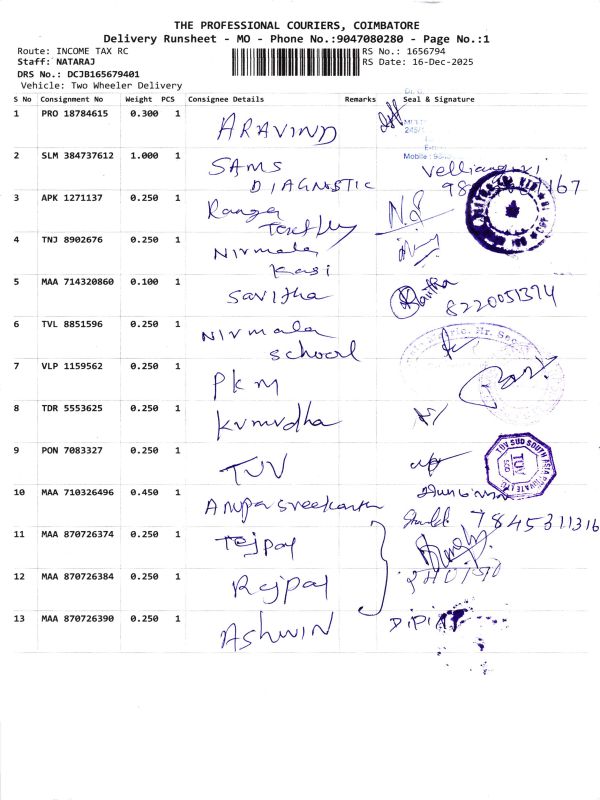 THE PROFESSIONAL COURIERS, COIMBATORE
Delivery Runsheet - MO - Phone No.:9047080280 - Page No.:1
Route: INCOME TAX RC
RS No.: 1656794
Staff: NATARAJ
RS Date: 16-Dec-2025
DRS No.: DCJB165679401
Vehicle: Two Wheeler Delivery
S No Consignment No Weight PCS Consignee Details Remarks Seal & Signature
1 PRO 18784615 0.300 1 ARAVIND
2 SLM 384737612 1.000 1 SAMS DIAGNOSTIC
Mobile
3 APK 1271137 0.250 1 Ranga
4 TNJ 8902676 0.250 1 Nirmala Kasi
5 MAA 714320860 0.100 1 Savitha 8220051374
6 TVL 8851596 0.250 1 Nirmala School
7 VLP 1159562 0.250 1 PKM
8 TDR 5553625 0.250 1 Kumudha
9 PON 7083327 0.250 1 TUV
TUV SUD SOUTH ASIA PRIVATE LTD
10 MAA 710326496 0.450 1 Anupa Sreekanth
7845311316
11 MAA 870726374 0.250 1 Tejpal
12 MAA 870726384 0.250 1 Rajpal
13 MAA 870726390 0.250 1 Ashwin